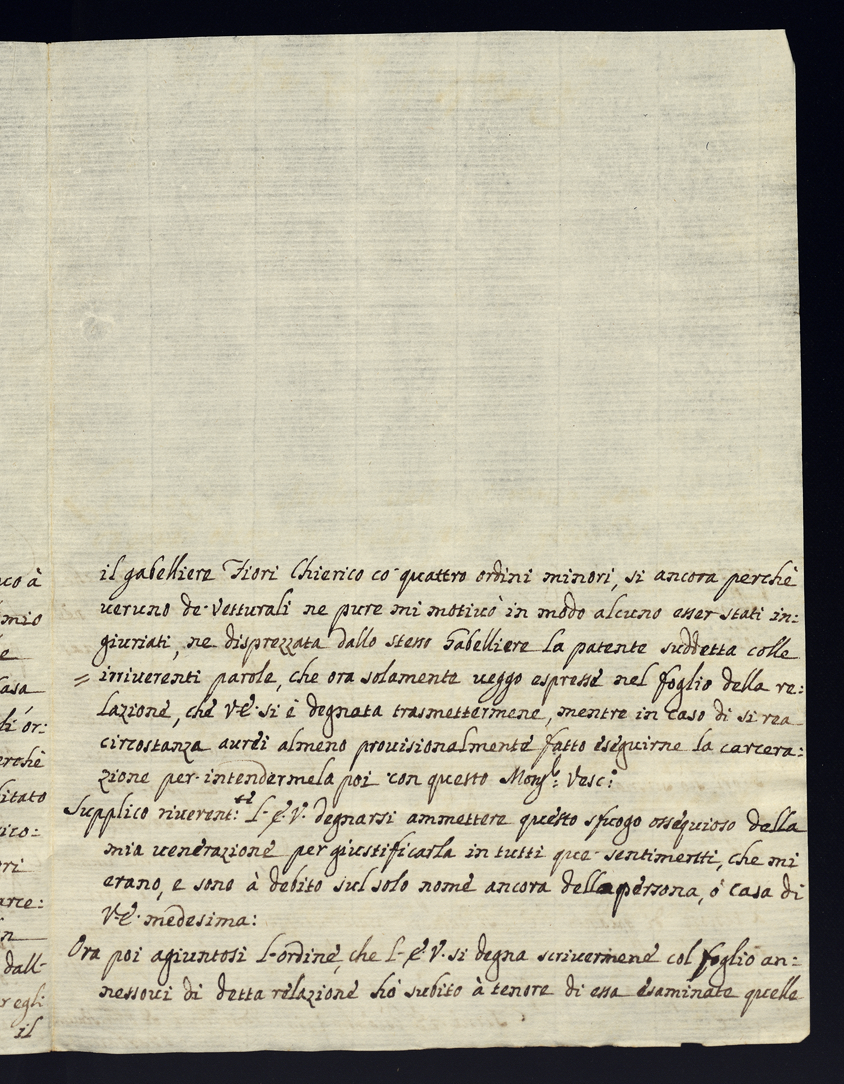 nco à
mio
e
Casa
di ór:
erchè
litato
rico:
ori
arce:
n
dall-
r egli
il
il gabelliere Fiori Chierico cò quattro ordini minori, si ancora perchè
veruno de Vetturali ne pure mi motivò in modo alcuno esser stati in:
giuriati, ne disprezzata dallo stesso Gabelliere la patente suddetta colle
= irriverenti parole, che ora solamente veggo espresse nel foglio della re:
lazione, che V-E- si è degnata trasmettermene, mentre in caso di si rea
circostanza aurei almeno provisionalmente fatto eseguirne la carcera:
zione per intendermela poi con questo Monsʳ: Vesc:º
Supplico riverent:ᵗᵉ L-E-V- degnarsi ammettere questo sfuogo ossequioso della
mia venerazione per giustificarla in tutti que sentimentti, che mi
erano, e sono à debito sul solo nome ancora della persona, ò casa di
V-E- medesima:
Ora poi agiuntosi l-ordine, che L-E-V- si degna scrivermene col foglio an:
nessovi di detta relazione hò subito à tenore di essa esaminate quelle